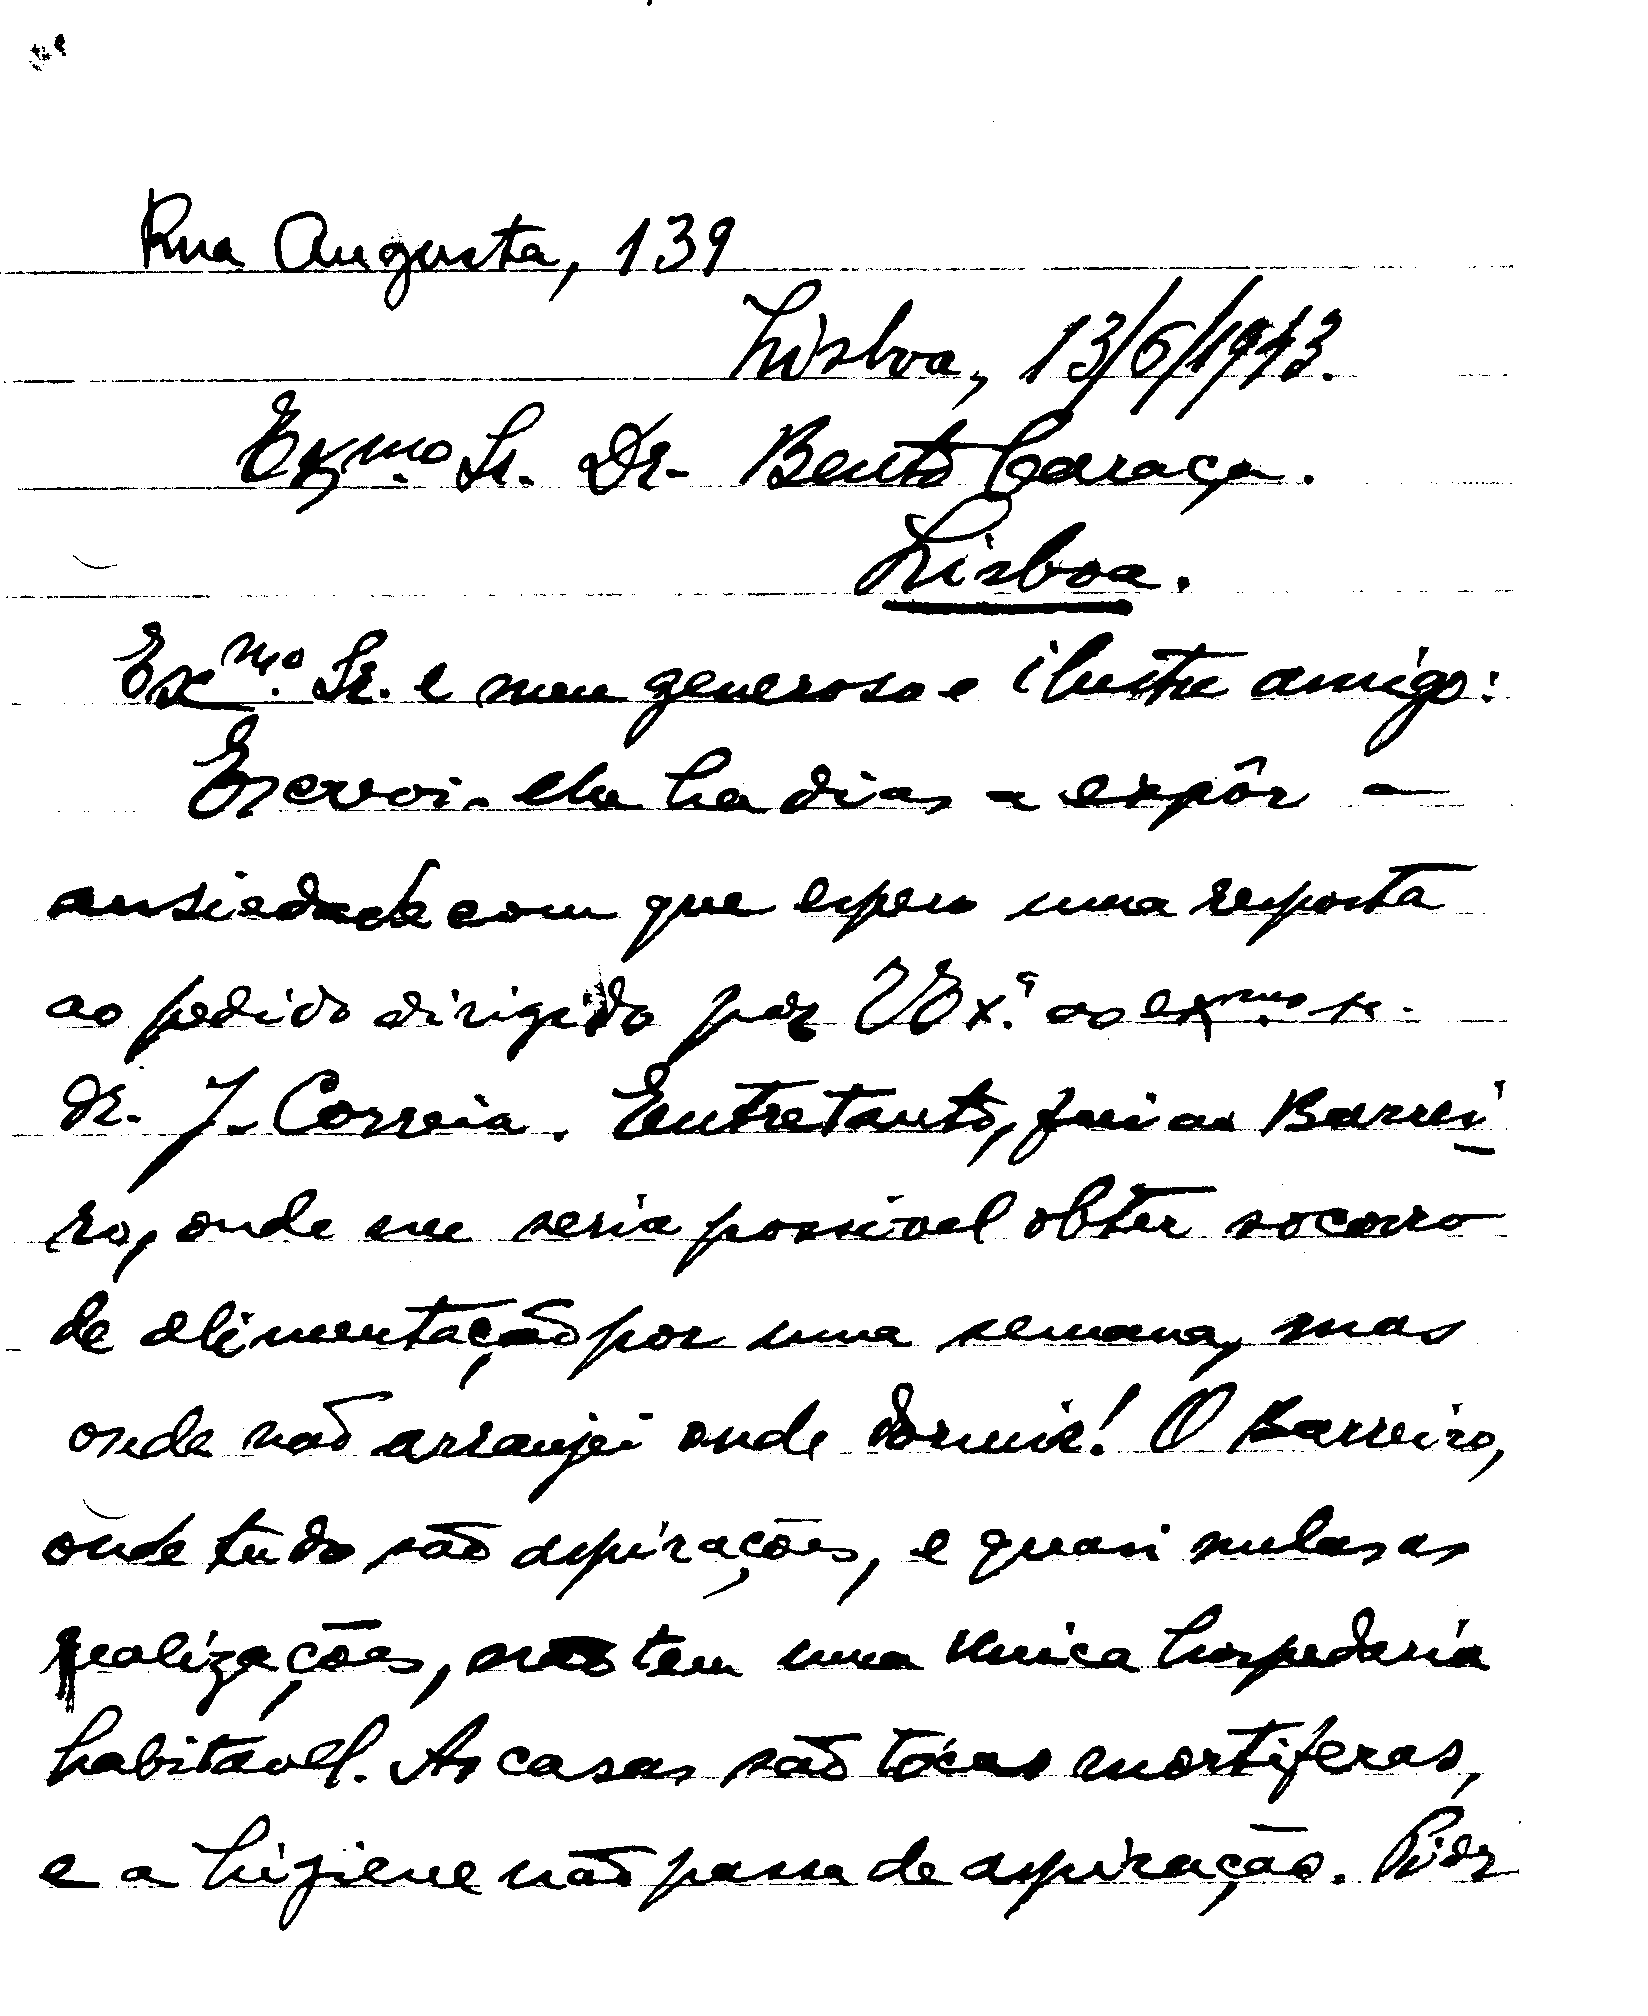 Rua Augusta, 139
Lisboa, 13/6/1943.
Exmo. Sr. Dr. Bento Caraça.
Lisboa.
Exmo. Sr. e meu generoso e ilustre amigo:
Escrevi-lhe ha dias a expôr a
ansiedade com que espero uma resposta
ao pedido dirigido por V Ex.ª ao exmo. sr.
dr. J. Correia. Entretanto, fui ao Barrei
ro, onde me seria possivel obter socorro
de alimentação por uma semana, mas
onde não arranjei onde dormir! O Barreiro,
onde tudo são aspirações, e quasi nulas as
realizações, não tem uma unica hospedaria
habitavel. As casas são tócas mortiferas,
e a higiene não passa de aspiração.